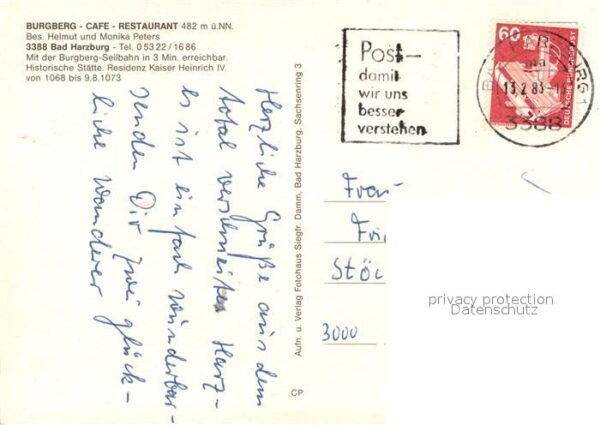 BURGBERG - CAFE - RESTAURANT 482 m ü.NN.
Bes. Helmut und Monika Peters
3388 Bad Harzburg - Tel. 0 53 22 / 16 86
Mit der Burgberg-Seilbahn in 3 Min. erreichbar.
Historische Stätte. Residenz Kaiser Heinrich IV.
von 1068 bis 9.8.1073
Herzliche Grüße aus dem
total verschneiten Harz-
es ist einfach wunderbar-
senden Dir zwei glück-
liche Wanderer
Aufn. u. Verlag Fotohaus Siegfr. Damm, Bad Harzburg, Sachsenring 3
CP
Post-
damit
wir uns
besser
verstehen
60
DEUTSCHE BUNDESPOST
ma
13.2.83
3388
Frau
Stöc
3000
privacy protection
Datenschutz